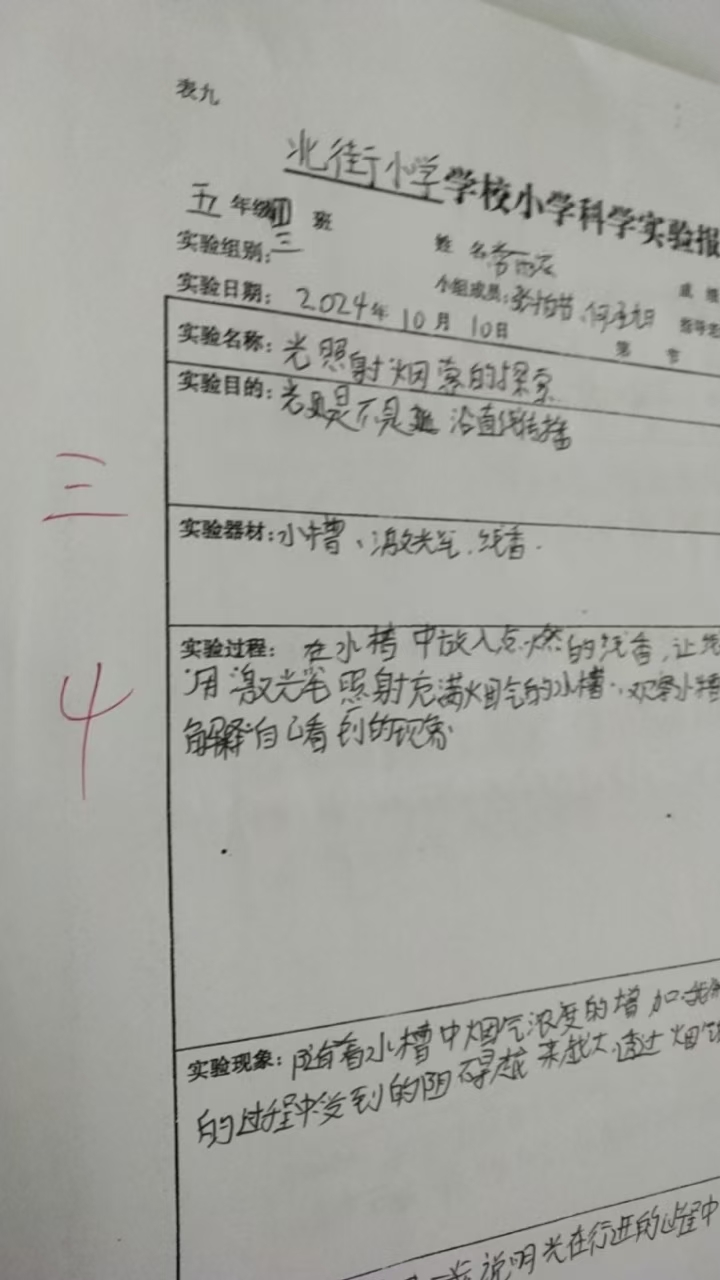 表九
北街小学学校小学科学实验报
五年级 班
实验组别:三
姓名
小组成员:
成 绩
实验日期: 2024年10月10日
指导
第 节
实验名称:光照射烟雾的探索
实验目的:光是不是 沿直线传播
三
实验器材:水槽、激光笔、线香.
实验过程: 在水槽中放入点燃的线香,让
用激光笔照射充满烟气的水槽.观察小槽
解释自己看到的现象
4
实验现象:随着水槽中烟气浓度的增加
的过程中受到的阻碍越来越大.透过烟气
说明光在行进的过程中